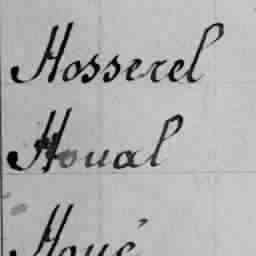 Hosserel
Houal
Houé